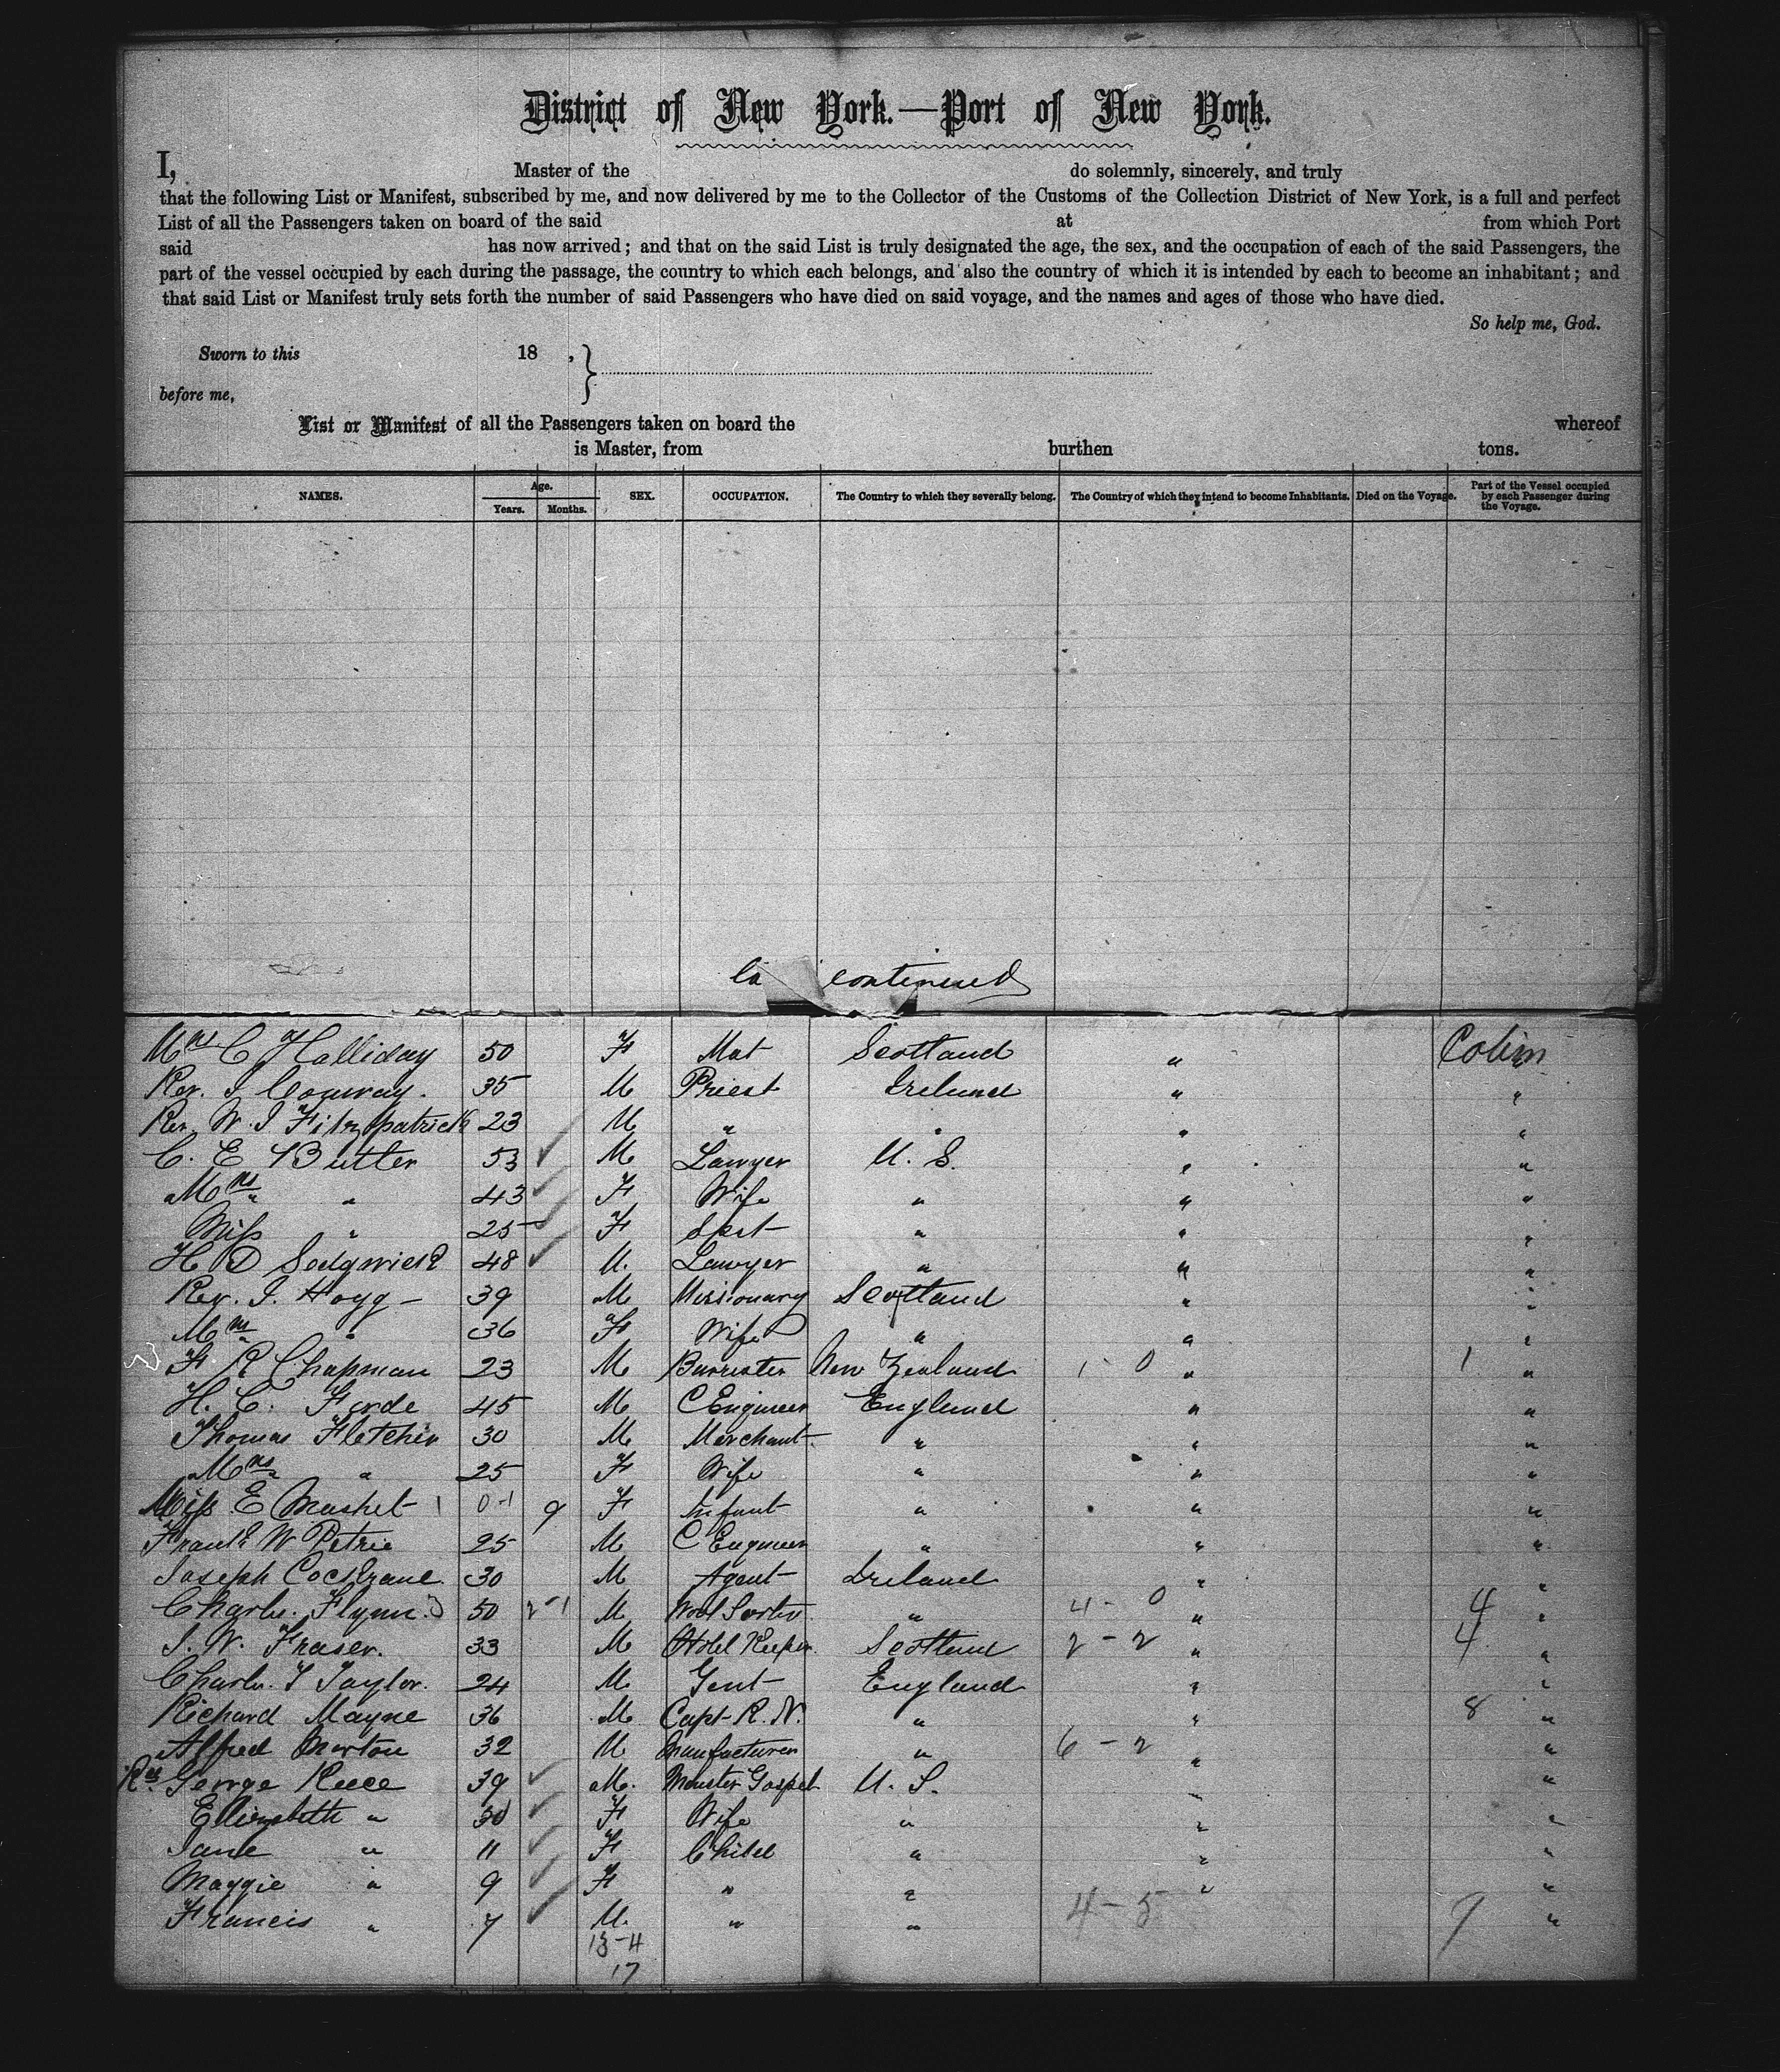 District of New York.—Port of New York.
I, Master of the do solemnly, sincerely, and truly
that the following List or Manifest, subscribed by me, and now delivered by me to the Collector of the Customs of the Collection District of New York, is a full and perfect
List of all the Passengers taken on board of the said at from which Port
said has now arrived; and that on the said List is truly designated the age, the sex, and the occupation of each of the said Passengers, the
part of the vessel occupied by each during the passage, the country to which each belongs, and also the country of which it is intended by each to become an inhabitant; and
that said List or Manifest truly sets forth the number of said Passengers who have died on said voyage, and the names and ages of those who have died.
So help me, God.
Sworn to this 18 ,
before me,
List or Manifest of all the Passengers taken on board the whereof
is Master, from burthen tons.
NAMES. Age. Years. Months. SEX. OCCUPATION. The Country to which they severally belong. The Country of which they intend to become Inhabitants. Died on the Voyage. Part of the Vessel occupied by each Passenger during the Voyage.
continued
Mrs C Halliday 50 F Mat Scotland " Cabin
Rev. J Conway. 35 M Priest Ireland " "
Rev. W. J Fitzpatrick 23 M " " " "
C. E Butler 53 M Lawyer U. S. " "
Mrs " 43 F Wife " " "
Miss " 25 F Spst " " "
H D Sedgwick 48 M. Lawyer " " "
Rev. J. Hogg 39 M Missionary Scotland " "
Mrs " 36 F Wife " " "
F R Chapman 23 M Barrister New Zealand 1 0 " 1 "
H. C. Forde 45 M C Engineer England " "
Thomas Fletcher 30 M Merchant " " "
Mrs " 25 F Wife " " "
Miss E Mushet 9 F Infant " " "
Frank W Petrie 25 M C Engineer " " "
Joseph Cochrane 30 M Agent Ireland " "
Charles Flynn 50 2-1 M Wool Sorter " 4 - 0 " 4 "
J. W. Fraser. 33 M Hotel Keeper Scotland 2 - 2 " 4 "
Charles J Taylor. 24 M Gent England " "
Richard Mayne 36 M Capt R. N. " " 8 "
Alfred Morton 32 M Manufacturer " 6 - 2 " "
Rev George Reece 39 M. Minister Gospel U. S. " "
Elizabeth " 30 F Wife " " "
Jane " 11 F Child " " "
Maggie " 9 F " " " "
Francis " 7 M. " " 4 - 5 9 "
13-4
17